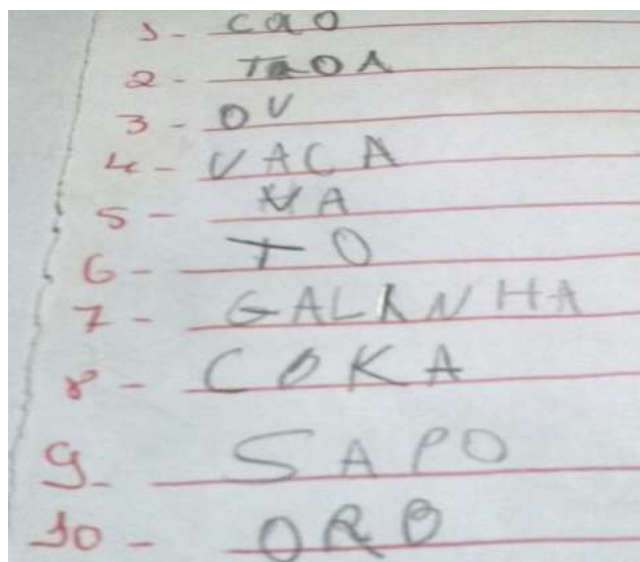 1- cao
2- TAOA
3- OV
4- VACA
5- NA
6- TO
7- GALANHA
8- COKA
9- SAPO
10- ORO